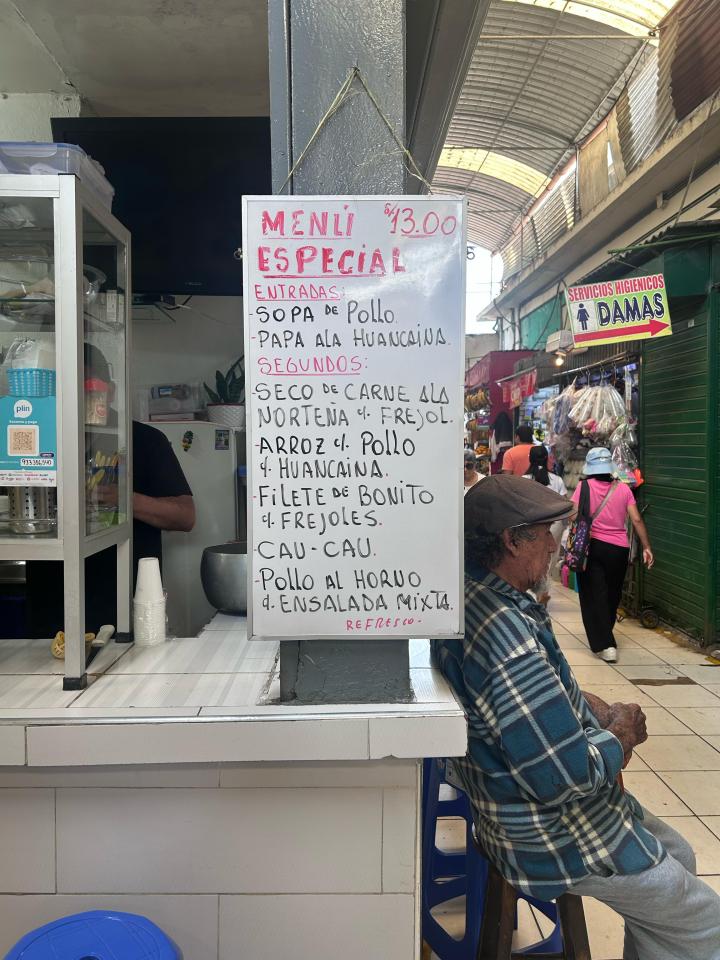 MENÚ S/13.00
ESPECIAL
ENTRADAS:
-SOPA DE POLLO.
-PAPA ALA HUANCAINA.
SEGUNDOS:
-SECO DE CARNE ALA
NORTEÑA c/. FREJOL.
-ARROZ c/. POLLO
c/. HUANCAINA.
-FILETE DE BONITO
c/. FREJOLES.
-CAU-CAU.
-POLLO AL HORNO
c/. ENSALADA MIXTA.
REFRESCO.
SERVICIOS HIGIENICOS
DAMAS
plin